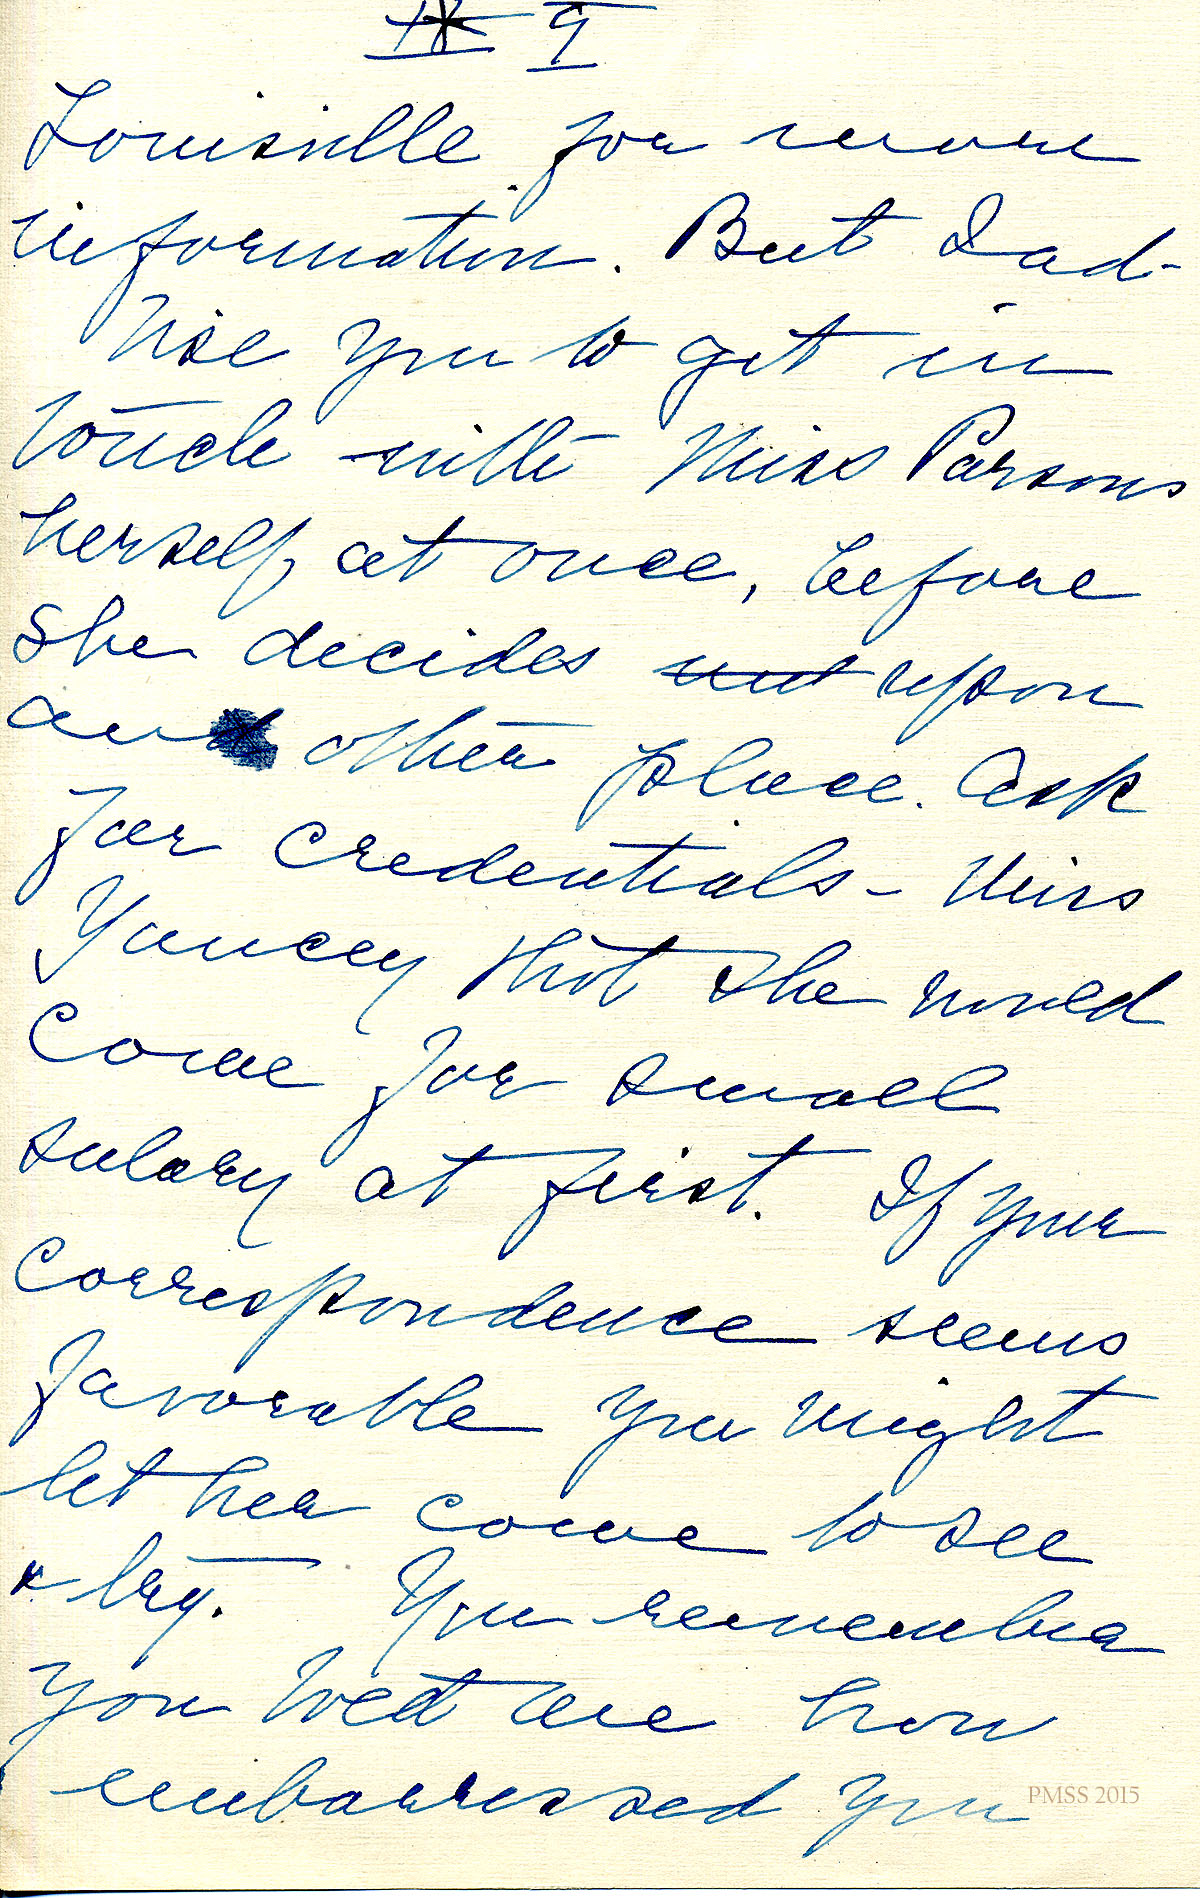 # 9
Louisville for more
information. But I ad-
vise you to get in
touch with Miss Parsons
herself at once, before
she decides upon
another place. Ask
for credentials - Miss
Yancey thot she would
come for small
salary at first. If your
correspondence seems
favorable you might
let her come to see
& try. You remember
you told me how
embarressed you
PMSS 2015